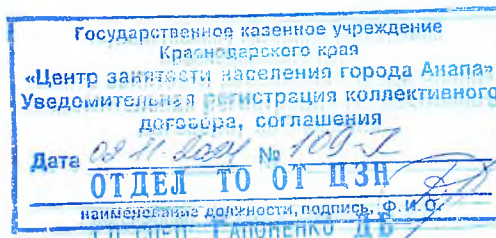 Государственное казенное учреждение
Краснодарского края
«Центр занятости населения города Анапа»
Уведомительная регистрация коллективного
договора, соглашения
Дата 09.11.2021 № 109-Т
ОТДЕЛ ТО ОТ ЦЗН
наименование должности, подпись, ф.и.о.
ГАПОНЕНКО